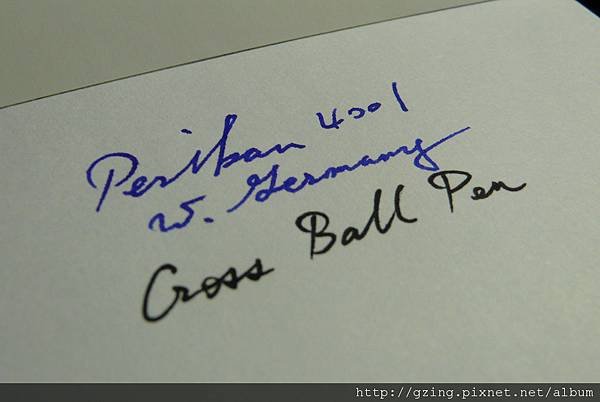 Perikan 4001
W. Germany
Cross Ball Pen
http://gzing.pixnet.net/album